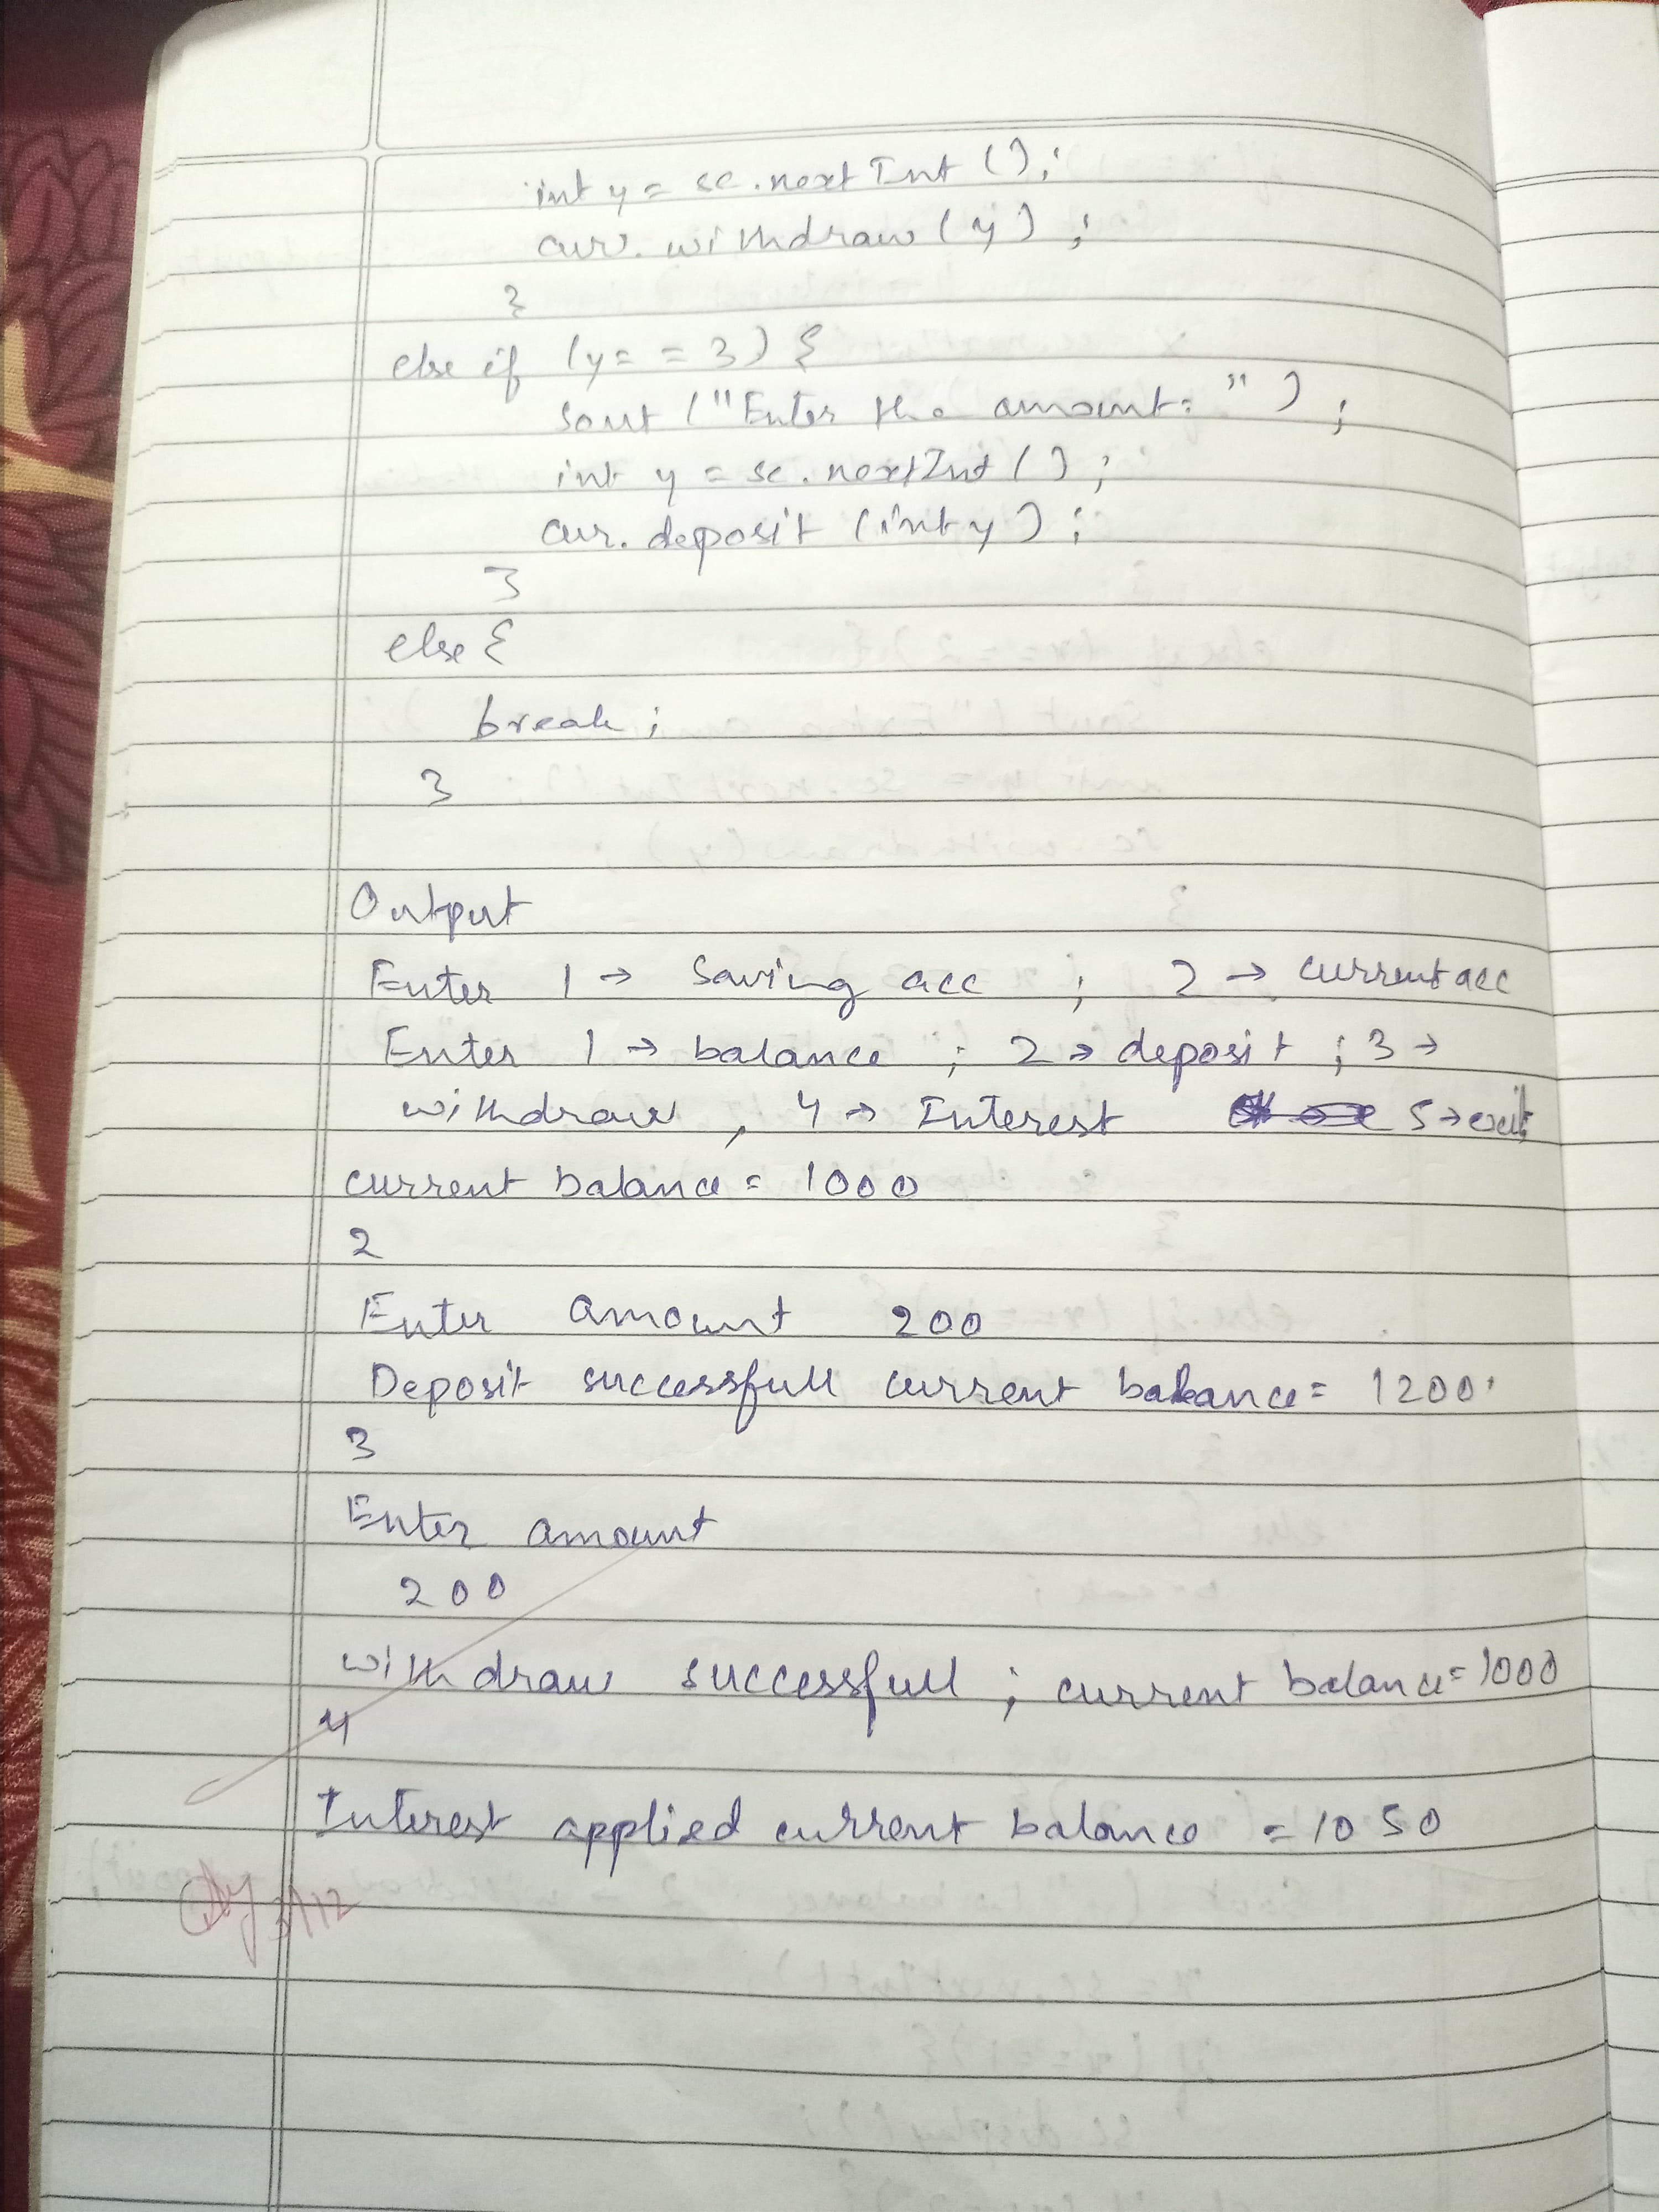 int y = sc.nextInt();
curr.withdraw(y);
}
else if (y==3) {
sout ("Enter the amount: ");
int y = sc.nextInt();
cur.deposit (int y);
}
else {
break;
}
Output
Enter 1 → Saving acc ; 2 → current acc
Enter 1 → balance ; 2 → deposit ; 3 →
withdraw , 4 → Interest 5 → exit
current balance = 1000
2
Enter amount 200
Deposit successfull current balance = 1200
3
Enter amount
200
withdraw successfull ; current balance = 1000
4
Interest applied current balance = 1050
3/12